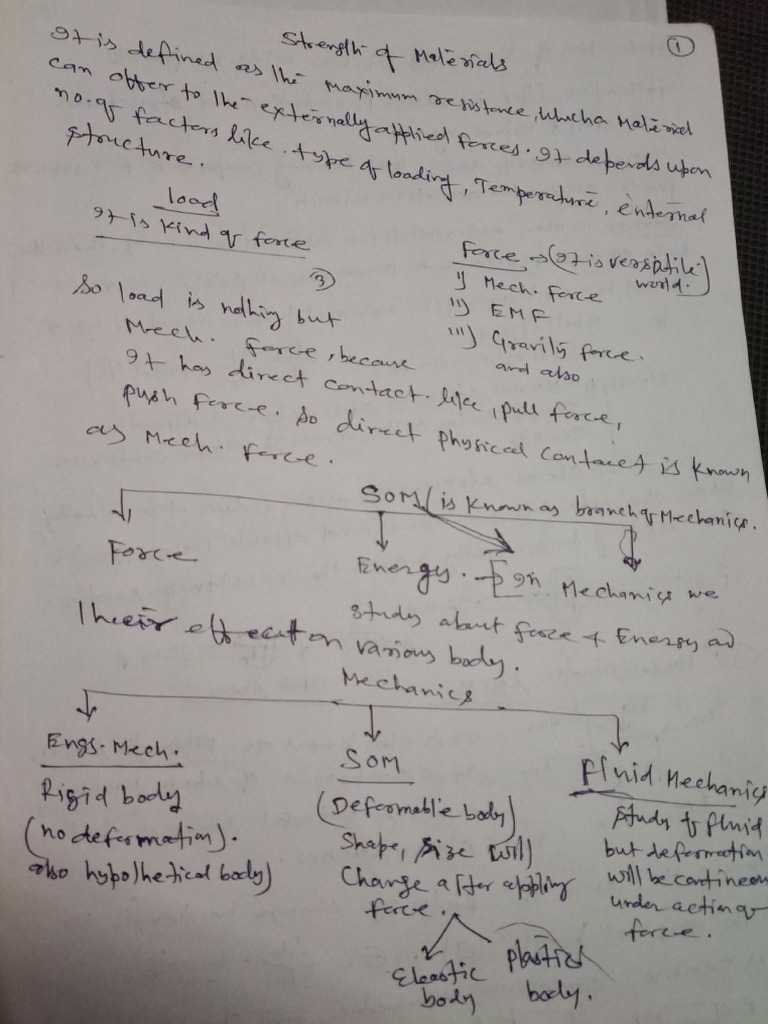 1
Strength of Materials
It is defined as the maximum resistance, which a Material
can offer to the externally applied forces. It depends upon
no. of factors like. type of loading, Temperature, internal
structure.
load
It is kind of force
Force → (It is versatile
world.)
i) Mech. force
ii) EMF
iii) Gravity force.
and also
3
So load is nothing but
Mech. force, because
It has direct contact. like, pull force,
push force. So direct physical contact is known
as Mech. force.
SOM (is known as branch of Mechanics.
Force
Energy. → [In Mechanics we
study about force & Energy and
Their effect on various body.
Mechanics
Engg. Mech.
Rigid body
(no deformation).
also hypothetical body)
SOM
(Deformable body)
Shape, size will
Change after applying
force.
Elastic
body
Plastic
body.
Fluid Mechanics
Study of fluid
but deformation
will be contineou
under action of
force.